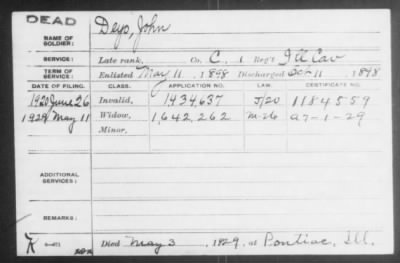 DEAD
NAME OF SOLDIER: Deys, John
SERVICE: Late rank, Co. C. 1 Reg't Ill Cav
TERM OF SERVICE: Enlisted May 11, 1898 Discharged Oct 11, 1898
DATE OF FILING. CLASS. APPLICATION NO. LAW. CERTIFICATE NO.
1920 June 26 Invalid, 1434,637 J/20 1184559
1929 May 11 Widow, 1,642,262 M-26 a7-1-29
Minor,
ADDITIONAL SERVICES:
REMARKS:
K Died May 3, 1929, at Pontiac, Ill.